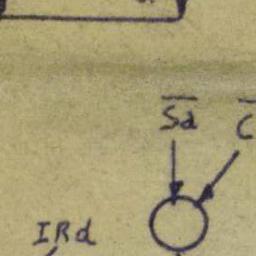 S̅d̅ C̅
IRd